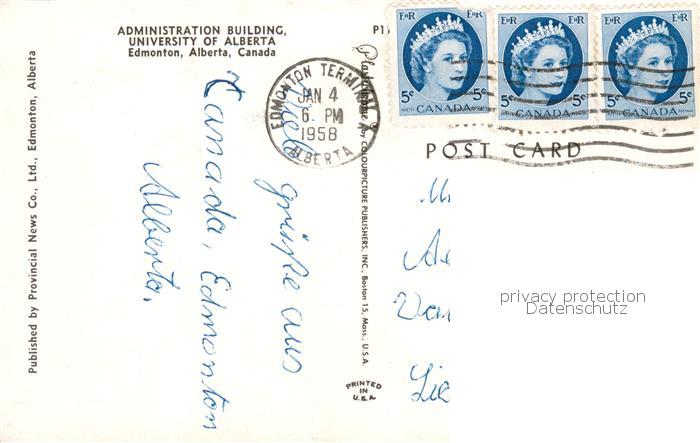 ADMINISTRATION BUILDING,
UNIVERSITY OF ALBERTA
Edmonton, Alberta, Canada
Published by Provincial News Co., Ltd., Edmonton, Alberta
Viele
grüße aus
Canada, Edmonton
Alberta.
EDMONTON TERMINAL A
JAN 4
6. PM
1958
ALBERTA
P17
Plastichrome by COLOURPICTURE PUBLISHERS, INC., Boston 15, Mass., U.S.A.
PRINTED
IN
U.S.A.
EIIR EIIR
5¢ CANADA 5¢
EIIR EIIR
5¢ CANADA 5¢
EIIR EIIR
5¢ CANADA 5¢
POST CARD
privacy protection
Datenschutz